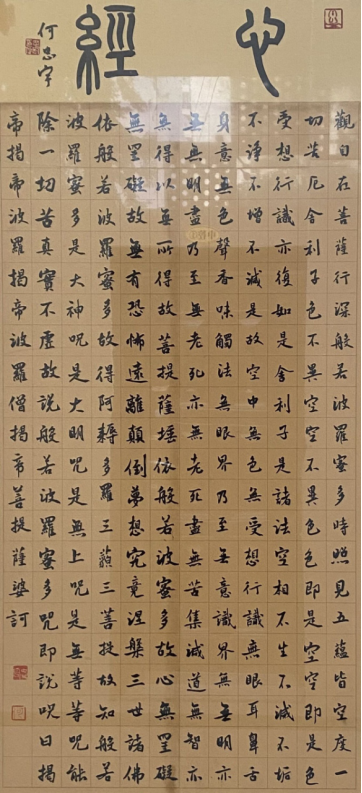 心經
觀自在菩薩行深般若波羅蜜多時照見五蘊皆空度一
切苦厄舍利子色不異空空不異色色即是空空即是色
受想行識亦復如是舍利子是諸法空相不生不滅不垢
不淨不增不減是故空中無色無受想行識無眼耳鼻舌
身意無色聲香味觸法無眼界乃至無意識界無無明亦
無無明盡乃至無老死亦無老死盡無苦集滅道無智亦
無得以無所得故菩提薩埵依般若波蜜多故心無罣礙
無罣礙故無有恐怖遠離顛倒夢想究竟涅槃三世諸佛
依般若波羅蜜多故得阿耨多羅三藐三菩提故知般若
波羅蜜多是大神咒是大明咒是無上咒是無等等咒能
除一切苦真實不虛故說般若波羅蜜多咒即說咒曰揭
帝揭帝波羅揭帝波羅僧揭帝菩提薩婆訶